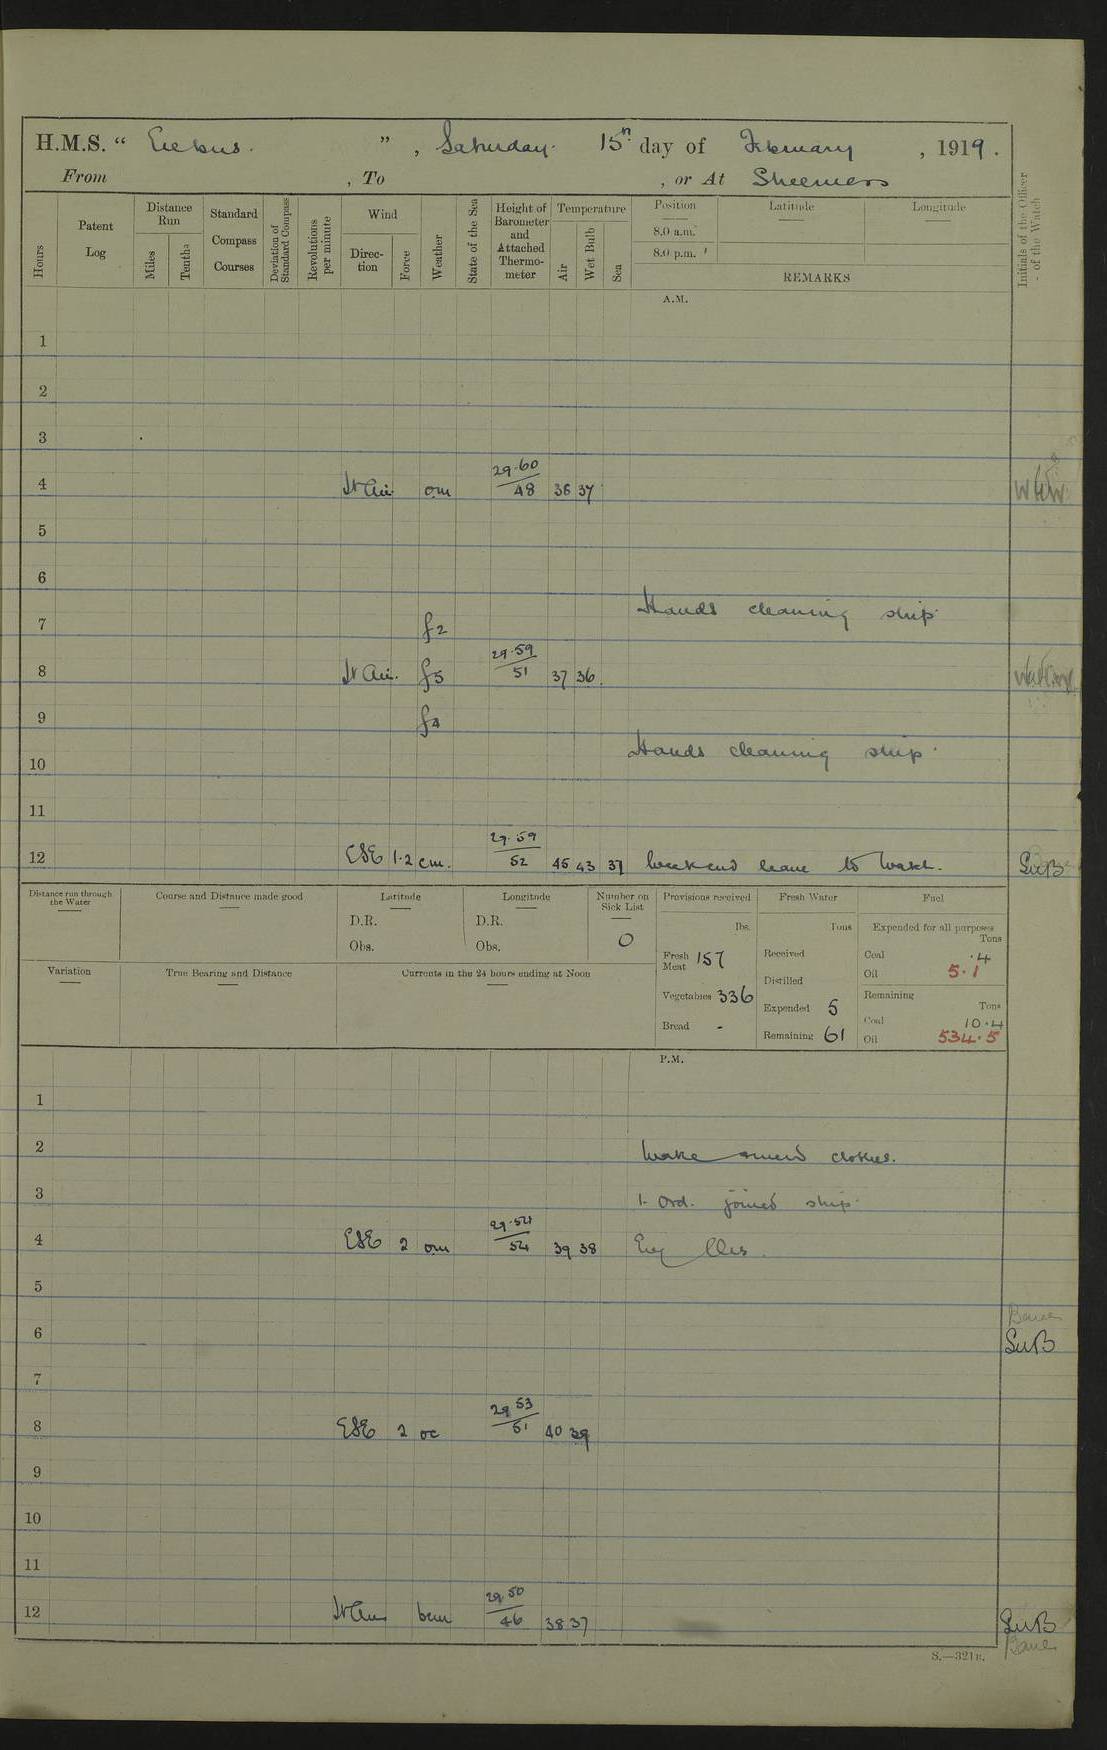 H.M.S. “ Erebus. ” , Saturday. 15th day of February , 1919.
From , To , or At Sheerness
Hours
Patent Log
Distance Run
Miles
Tenths
Standard Compass Courses
Deviation of Standard Compass
Revolutions per minute
Wind
Direction
Force
Weather
State of the Sea
Height of Barometer and Attached Thermometer
Temperature
Air
Wet Bulb
Sea
Position
8.0 a.m.
8.0 p.m.
Latitude
Longitude
REMARKS
Initials of the Officer of the Watch
A.M.
1
2
3
4 Lt Air om 29.60/48 38 37 WHW
5
6
Hands cleaning ship
7 f2
8 Lt Air. f5 29.59/51 37 36
9 f4
Hands cleaning ship
10
11
12 ESE 1.2 cm. 29.59/52 45 43 37 Weekend leave to watch. SuB
Distance run through the Water
Course and Distance made good
Latitude
D.R.
Obs.
Longitude
D.R.
Obs.
Number on Sick List
0
Variation
True Bearing and Distance
Currents in the 24 hours ending at Noon
Provisions received
lbs.
Fresh Meat 157
Vegetables 336
Bread -
Fresh Water
Tons
Received
Distilled
Expended 5
Remaining 61
Fuel
Expended for all purposes
Tons
Coal .4
Oil 5.1
Remaining
Tons
Coal 10.4
Oil 534.5
P.M.
1
2 Make & mend clothes.
3 1. Ord. joined ship.
4 ESE 2 om 29.54/54 39 38
5
6 SuB
7
8 ESE 2 oc 29 53/51 40 39
9
10
11
12 Lt Airs bcm 29 50/46 38 37 SuB
S.—321B.